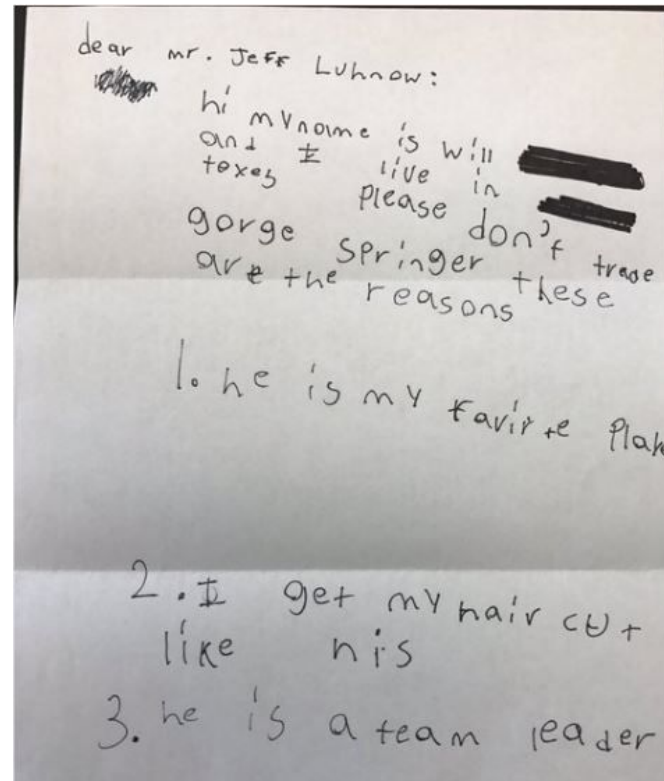 dear mr. Jeff Luhnow:
hi my name is will
and I live in
texes please don't trade
gorge springer these
are the reasons these
1. he is my favirte Play
2. I get my hair cut
like his
3. he is a team leader